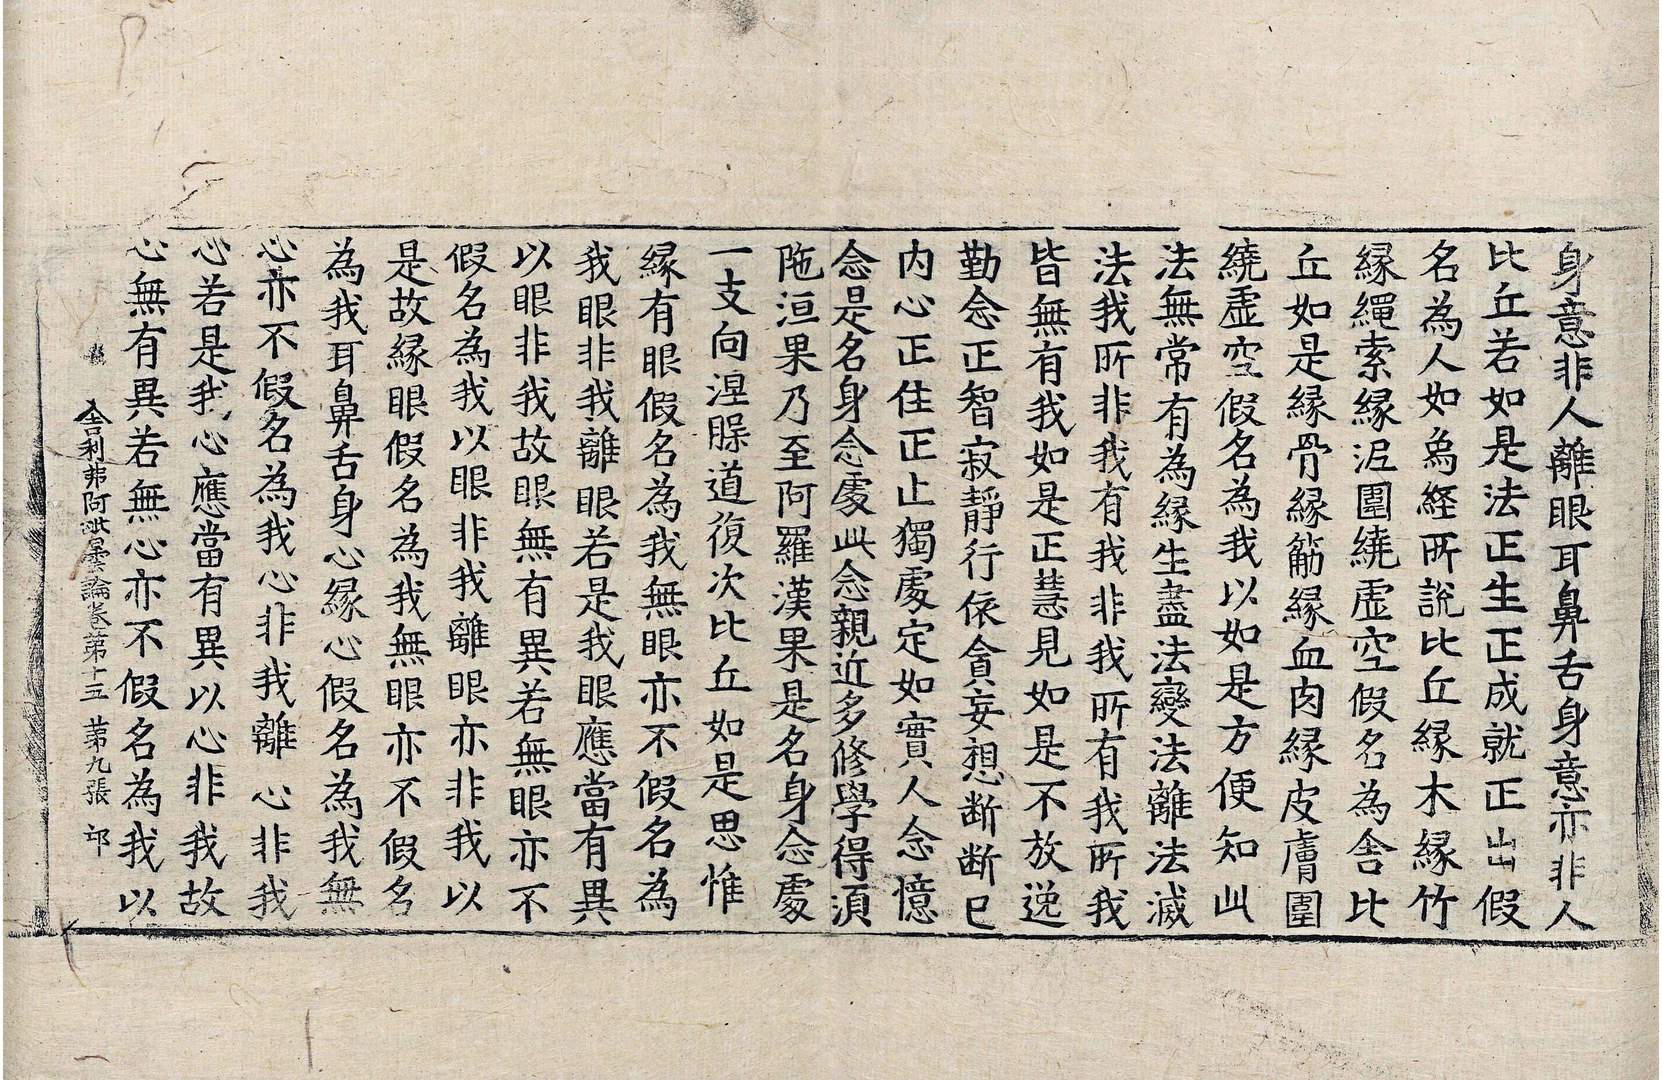 身意非人離眼耳鼻舌身意亦非人
比丘若如是法正生正成就正出假
名為人如烏経所說比丘縁木縁竹
縁繩索縁泥圍繞虛空假名為舎比
丘如是縁骨縁筋縁血肉縁皮膚圍
繞虛空假名為我以如是方便知此
法無常有為縁生盡法變法離法滅
法我所非我有我非我所有我所我
皆無有我如是正慧見如是不放逸
勤念正智寂靜行依貪妄想断断已
内心正住正止獨處定如實人念憶
念是名身念處此念親近多修學得湏
陁洹果乃至阿羅漢果是名身念處
一支向涅槃道復次比丘如是思惟
縁有眼假名為我無眼亦不假名為
我眼非我離眼若是我眼應當有異
以眼非我故眼無有異若無眼亦不
假名為我以眼非我離眼亦非我以
是故縁眼假名為我無眼亦不假名
為我耳鼻舌身心縁心假名為我無
心亦不假名為我心非我離心非我
心若是我心應當有異以心非我故
心無有異若無心亦不假名為我以
舎利弗阿毗曇論卷第十五 第九張